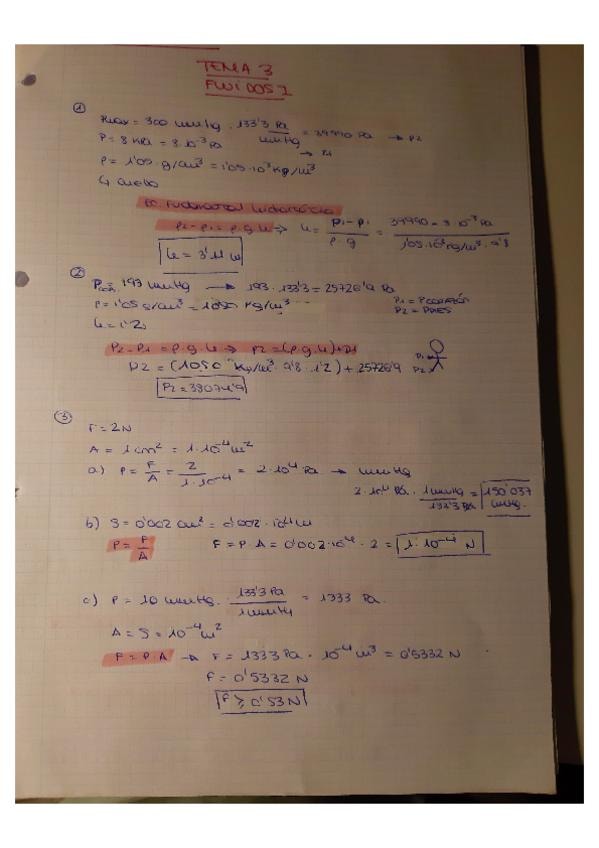 TEMA 3
FLUIDOS 1
①
Pmax = 300 mmHg · 133'3 Pa/mmHg = 39990 Pa → P2
P = 8 KPa = 8·10⁻³ Pa → P1
ρ = 1'05 g/cm³ = 1'05·10³ Kg/m³
↳ cuello
EC. Fundamental hidrostática
P2 - P1 = ρ·g·h ⇒ h = (P1 - P1)/(ρ·g) = (39990 - 8·10⁻³ Pa)/(1'05·10³ Kg/m³ · 9'8)
h = 3'11 m
②
193 mmHg → 193·133'3 = 25726'9 Pa
ρ = 1'05 g/cm³ = 1050 Kg/m³
P1 = PCORAZÓN
P2 = PPIES
h = 1'2
P2 - P1 = ρ·g·h ⇒ P2 = (ρ·g·h) + P1
P2 = (1050 Kg/m³ · 9'8 · 1'2) + 25726'9
P1
P2
P2 = 38074'9
③
F = 2N
A = 1 cm² = 1·10⁻⁴ m²
a) P = F/A = 2/(1·10⁻⁴) = 2·10⁴ Pa → mmHg
2·10⁴ Pa · 1mmHg/133'3 Pa = 150'037 mmHg.
b) S = 0'002 cm² = 0'002·10⁻⁴ m
P = F/A F = P·A = 0'002·10⁴ · 2 = 1·10⁻⁴ N
c) P = 10 mmHg · 133'3 Pa/1mmHg = 1333 Pa.
A = S = 10⁻⁴ m²
F = P·A → F = 1333 Pa · 10⁻⁴ m³ = 0'5332 N
F = 0'5332 N
F ≥ 0'53 N